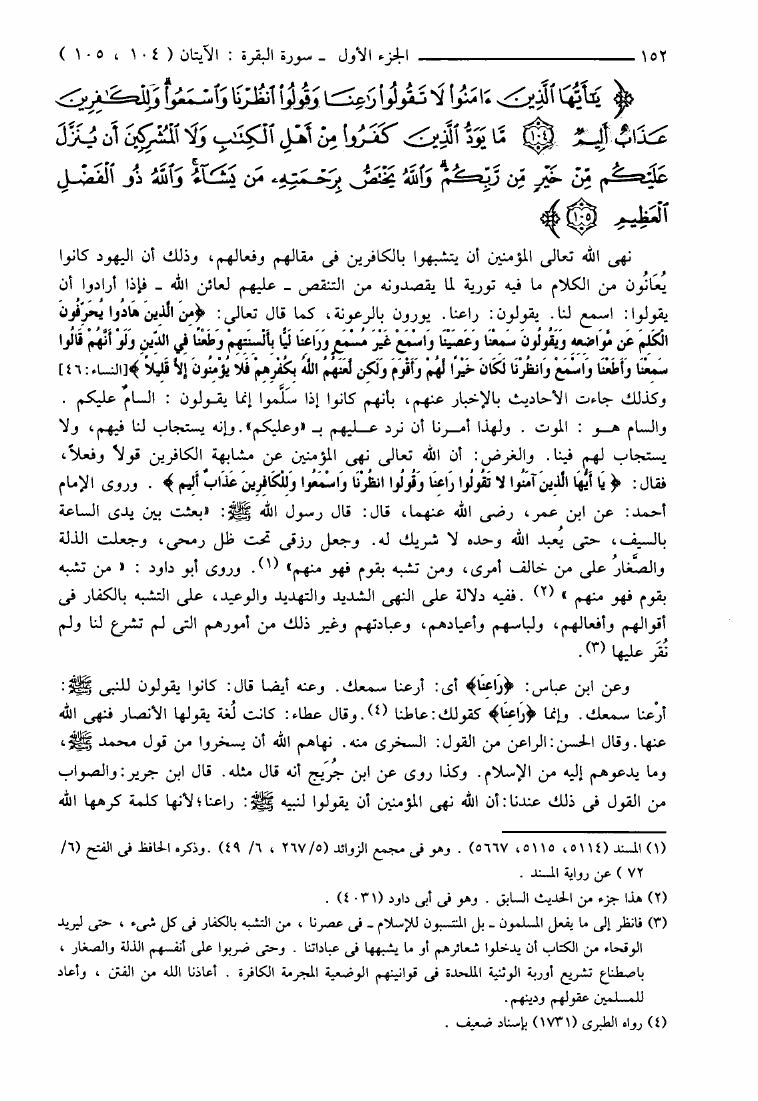 ١٥٢ ــــــــــــــــــــ الجزء الأول ـ سورة البقرة : الآيتان ( ١٠٤ ، ١٠٥ )
﴿ يَٰٓأَيُّهَا ٱلَّذِينَ ءَامَنُوا۟ لَا تَقُولُوا۟ رَٰعِنَا وَقُولُوا۟ ٱنظُرْنَا وَٱسْمَعُوا۟ ۗ وَلِلْكَٰفِرِينَ
عَذَابٌ أَلِيمٌ ١٠٤ مَّا يَوَدُّ ٱلَّذِينَ كَفَرُوا۟ مِنْ أَهْلِ ٱلْكِتَٰبِ وَلَا ٱلْمُشْرِكِينَ أَن يُنَزَّلَ
عَلَيْكُم مِّنْ خَيْرٍ مِّن رَّبِّكُمْ ۗ وَٱللَّهُ يَخْتَصُّ بِرَحْمَتِهِۦ مَن يَشَآءُ ۚ وَٱللَّهُ ذُو ٱلْفَضْلِ
ٱلْعَظِيمِ ١٠٥ ﴾
نهى الله تعالى المؤمنين أن يتشبهوا بالكافرين فى مقالهم وفعالهم، وذلك أن اليهود كانوا
يُعَانُون من الكلام ما فيه تورية لما يقصدونه من التنقص ـ عليهم لعائن الله ـ فإذا أرادوا أن
يقولوا: اسمع لنا. يقولون: راعنا. يورون بالرعونة، كما قال تعالى: ﴿مِنَ الَّذِينَ هَادُوا يُحَرِّفُونَ
الْكَلِمَ عَن مَّوَاضِعِهِ وَيَقُولُونَ سَمِعْنَا وَعَصَيْنَا وَاسْمَعْ غَيْرَ مُسْمَعٍ وَرَاعِنَا لَيًّا بِأَلْسِنَتِهِمْ وَطَعْنًا فِي الدِّينِ وَلَوْ أَنَّهُمْ قَالُوا
سَمِعْنَا وَأَطَعْنَا وَاسْمَعْ وَانظُرْنَا لَكَانَ خَيْرًا لَّهُمْ وَأَقْوَمَ وَلَكِن لَّعَنَهُمُ اللَّهُ بِكُفْرِهِمْ فَلا يُؤْمِنُونَ إِلاَّ قَلِيلاً ﴾[النساء:٤٦]
وكذلك جاءت الأحاديث بالإخبار عنهم، بأنهم كانوا إذا سَلَّموا إنما يقـولون : السامُ عليكم .
والسام هـو : الموت . ولهذا أمـرنا أن نرد عـليهم بـ «وعليكم».وإنه يستجاب لنا فيهم، ولا
يستجاب لهم فينا. والغرض: أن الله تعالى نهى المؤمنين عن مشابهة الكافرين قولاً وفعلاً،
فقال: ﴿ يَا أَيُّهَا الَّذِينَ آمَنُوا لا تَقُولُوا رَاعِنَا وَقُولُوا انظُرْنَا وَاسْمَعُوا وَلِلْكَافِرِينَ عَذَابٌ أَلِيم ﴾ . وروى الإمام
أحمد: عن ابن عمر، رضى الله عنهما، قال: قال رسول الله ﷺ: «بعثت بين يدى الساعة
بالسيف، حتى يُعبد الله وحده لا شريك له. وجعل رزقى تحت ظل رمحى، وجعلت الذلة
والصَّغارُ على من خالف أمرى، ومن تشبه بقوم فهو منهم» (١). وروى أبو داود : « من تشبه
بقوم فهو منهم » (٢) .ففيه دلالة على النهى الشديد والتهديد والوعيد، على التشبه بالكفار فى
أقوالهم وأفعالهم، ولباسهم وأعيادهم، وعبادتهم وغير ذلك من أمورهم التى لم تشرع لنا ولم
نُقَر عليها (٣).
وعن ابن عباس: ﴿رَاعِنَا﴾ أى: أرعنا سمعك. وعنه أيضا قال: كانوا يقولون للنبى ﷺ:
أرْعنا سمعك. وإنما ﴿رَاعِنَا﴾ كقولك:عاطنا (٤).وقال عطاء: كانت لُغة يقولها الأنصار فنهى الله
عنها.وقال الحسن:الراعن من القول: السخرى منه. نهاهم الله أن يسخروا من قول محمد ﷺ،
وما يدعوهم إليه من الإسلام. وكذا روى عن ابن جُرَيج أنه قال مثله. قال ابن جرير:والصواب
من القول فى ذلك عندنا:أن الله نهى المؤمنين أن يقولوا لنبيه ﷺ: راعنا؛لأنها كلمة كرهها الله
(١) المسند (٥١١٤، ٥١١٥، ٥٦٦٧) . وهو فى مجمع الزوائد (٥/ ٢٦٧ ، ٦/ ٤٩) .وذكره الحافظ فى الفتح (٦/
٧٢ ) عن رواية المسند .
(٢) هذا جزء من الحديث السابق . وهو فى أبى داود (٤٠٣١) .
(٣) فانظر إلى ما يفعل المسلمون ـ بل المنتسبون للإسلام ـ فى عصرنا ، من التشبه بالكفار فى كل شىء ، حتى ليريد
الوقحاء من الكتاب أن يدخلوا شعائرهم أو ما يشبهها فى عباداتنا . وحتى ضربوا على أنفسهم الذلة والصغار ،
باصطناع تشريع أوربة الوثنية الملحدة فى قوانينهم الوضعية المجرمة الكافرة . أعاذنا الله من الفتن ، وأعاد
للمسلمين عقولهم ودينهم.
(٤) رواه الطبرى (١٧٣١) بإسناد ضعيف .